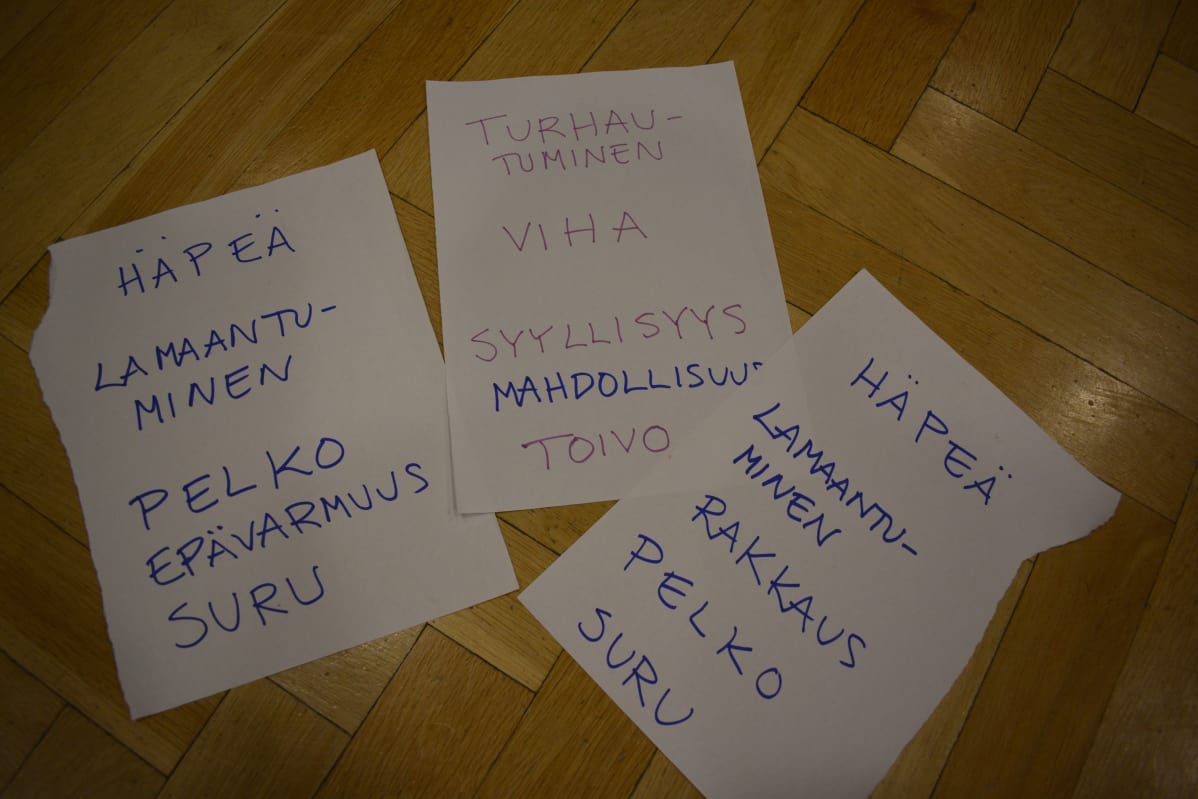 HÄPEÄ
LAMAANTU-
MINEN
PELKO
EPÄVARMUUS
SURU
TURHAU-
TUMINEN
VIHA
SYYLLISYYS
MAHDOLLISUUS
TOIVO
HÄPEÄ
LAMAANTU-
MINEN
RAKKAUS
PELKO
SURU